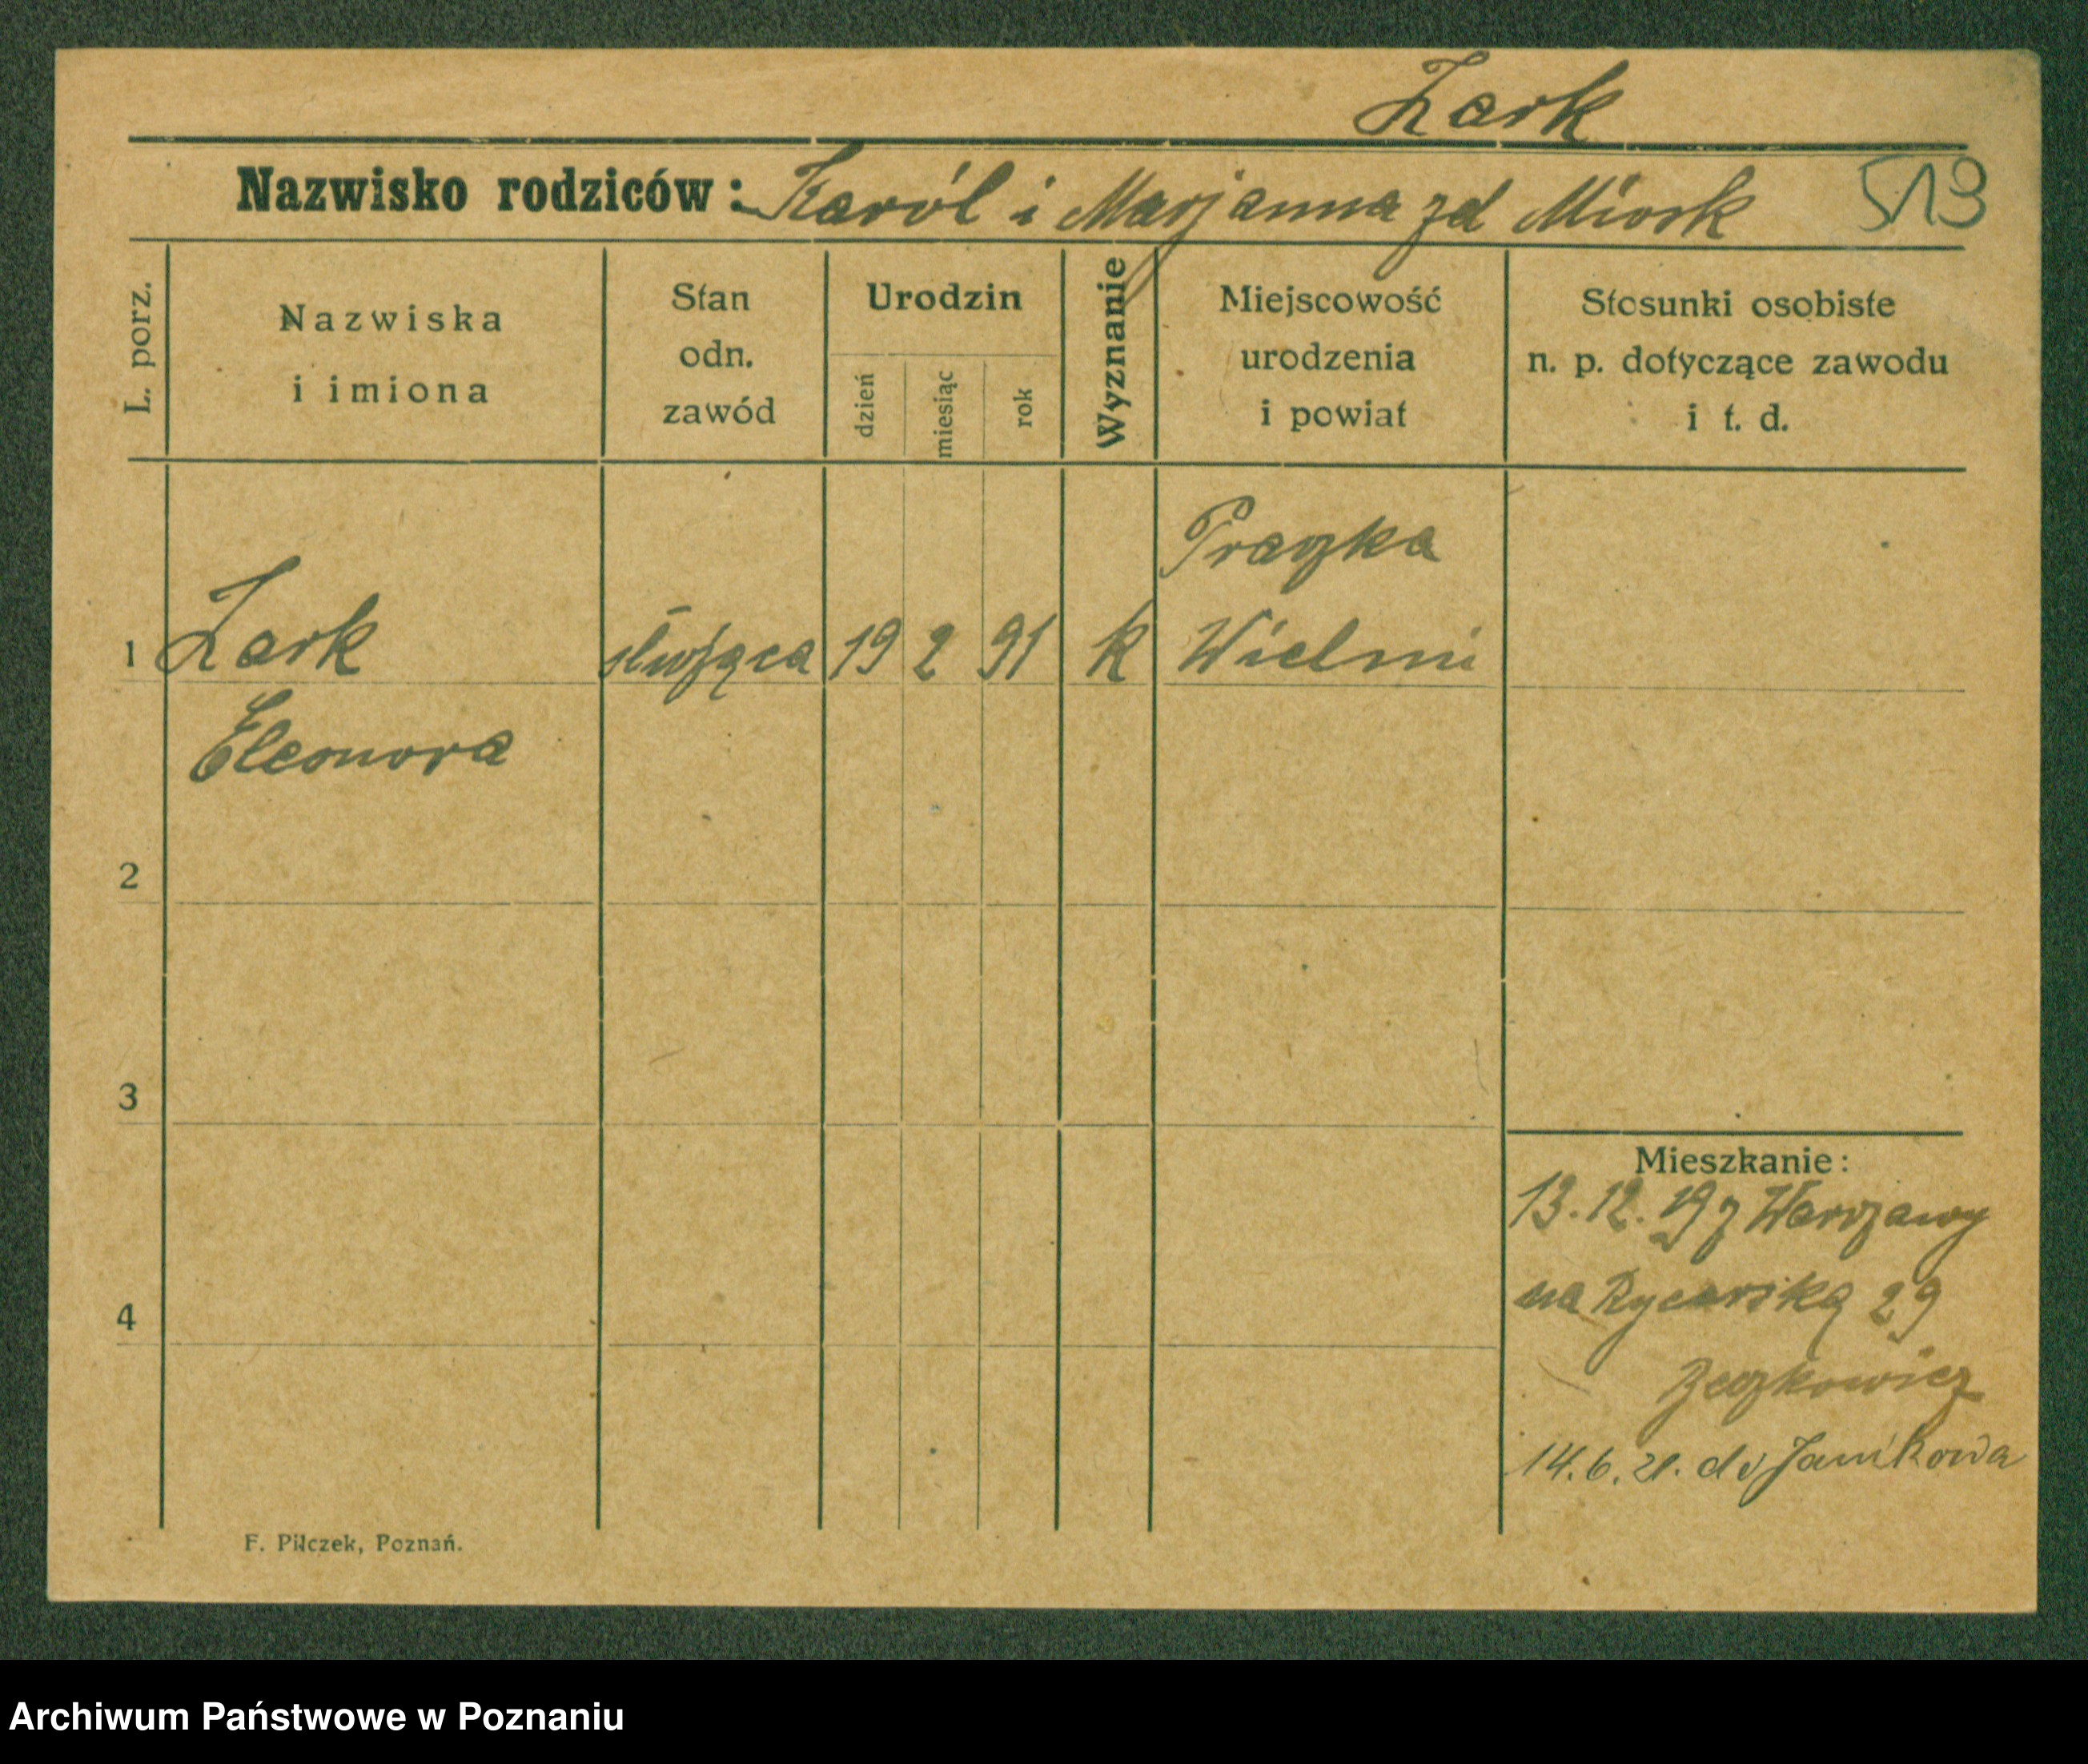 Żark
Nazwisko rodziców: Karól i Marjanna zd Miork
513
L. porz.
Nazwiska i imiona
Stan odn. zawód
Urodzin
dzień
miesiąc
rok
Wyznanie
Miejscowość urodzenia i powiat
Stosunki osobiste n. p. dotyczące zawodu i t. d.
Praszka
1 Żark służąca 19 2 91 k Wieluń
Eleonora
2
3
4
Mieszkanie:
13.12.19 z Warszawy
na Rycerską 29
14.6.21. do Janikowa
F. Pilczek, Poznań.
Archiwum Państwowe w Poznaniu